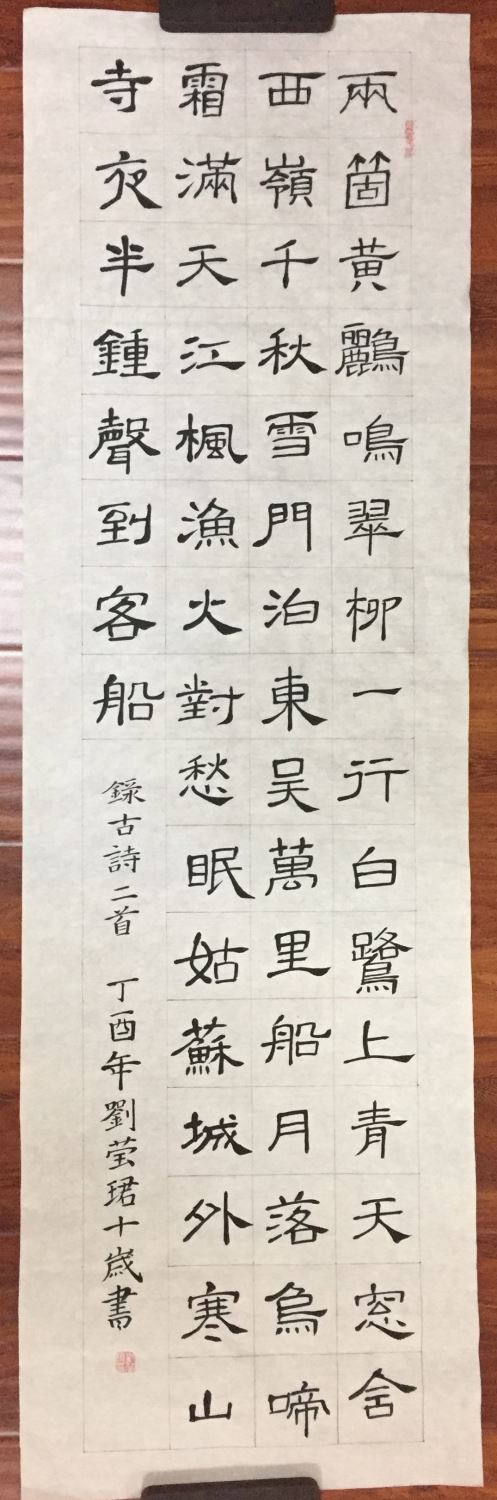 兩箇黃鸝鳴翠柳一行白鷺上青天窓含
西嶺千秋雪門泊東吴萬里船月落烏啼
霜滿天江楓漁火對愁眠姑蘇城外寒山
寺夜半鍾聲到客船
錄古詩二首 丁酉年劉莹珺十歲書